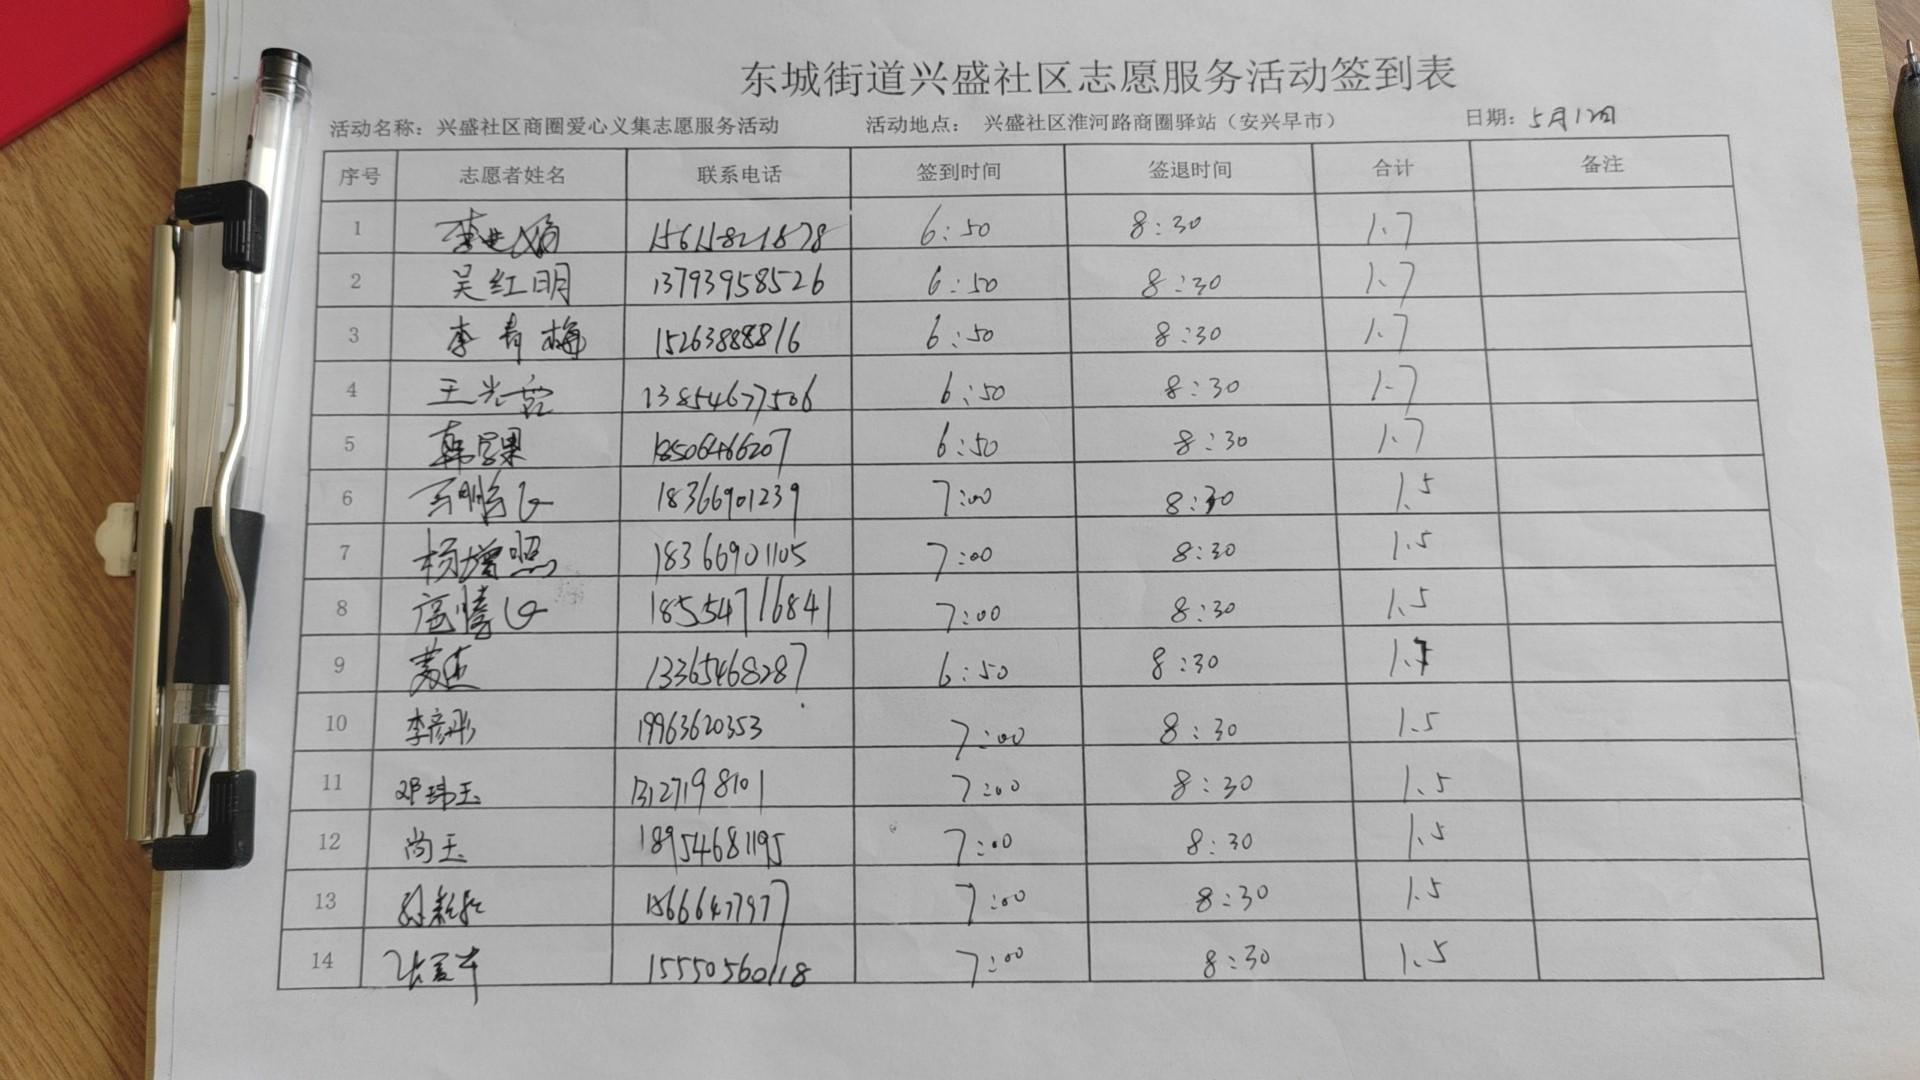 东城街道兴盛社区志愿服务活动签到表
活动名称：兴盛社区商圈爱心义集志愿服务活动 活动地点： 兴盛社区淮河路商圈驿站（安兴早市） 日期：5月12日
序号 志愿者姓名 联系电话 签到时间 签退时间 合计 备注
1 15615821878 6:50 8:30 1.7
2 吴红明 13793958526 6:50 8:30 1.7
3 李青梅 15263888816 6:50 8:30 1.7
4 13854677506 6:50 8:30 1.7
5 18506466207 6:50 8:30 1.7
6 18366901239 7:00 8:30 1.5
7 杨增照 18366901105 7:00 8:30 1.5
8 18554716841 7:00 8:30 1.5
9 13365468287 6:50 8:30 1.7
10 李彦彤 19963620353 7:00 8:30 1.5
11 邓玮玉 13127198101 7:00 8:30 1.5
12 尚玉 18954681195 7:00 8:30 1.5
13 7:00 8:30 1.5
14 15550560118 7:00 8:30 1.5